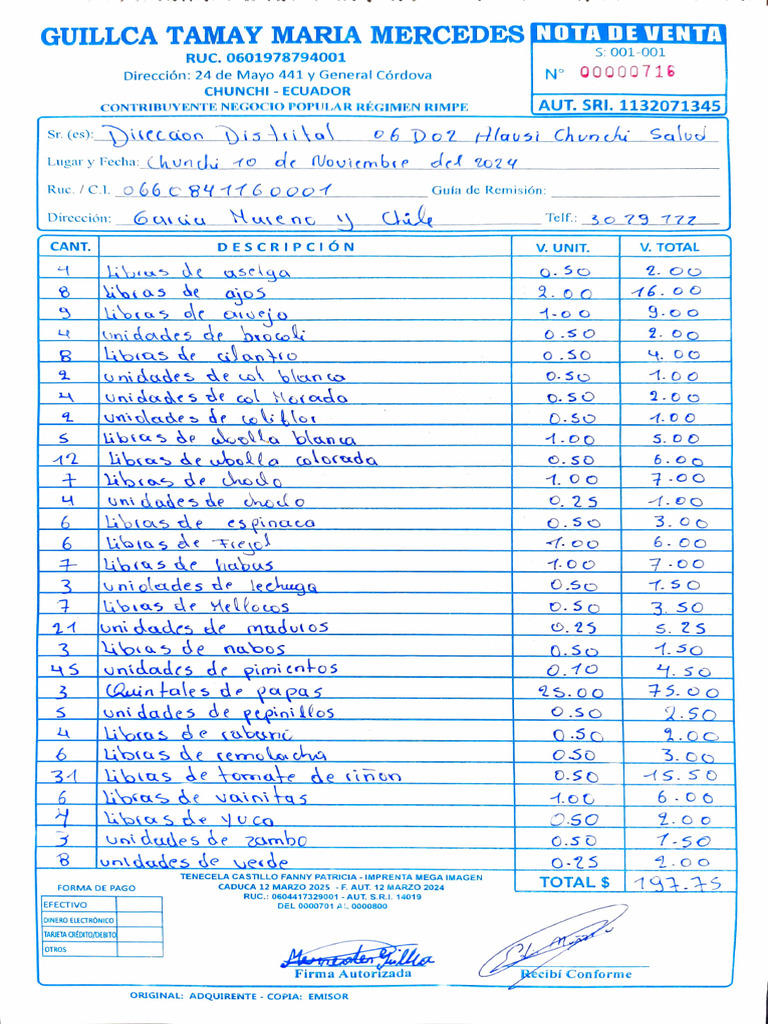 GUILLCA TAMAY MARIA MERCEDES
RUC. 0601978794001
Dirección: 24 de Mayo 441 y General Córdova
CHUNCHI - ECUADOR
CONTRIBUYENTE NEGOCIO POPULAR RÉGIMEN RIMPE
NOTA DE VENTA
S: 001-001
N° 00000716
AUT. SRI. 1132071345
Sr. (es): Direccion Distrital 06D02 Alausi Chunchi Salud
Lugar y Fecha: Chunchi 10 de Noviembre del 2024
Ruc. / C.I. 0660841160001 Guía de Remisión:
Dirección: Garcia Moreno y Chile Telf.: 3029122
CANT. DESCRIPCIÓN V. UNIT. V. TOTAL
4 Libras de aselga 0.50 2.00
8 Libras de ajos 2.00 16.00
9 Libras de arveja 1.00 9.00
4 unidades de brocoli 0.50 2.00
8 Libras de cilantro 0.50 4.00
2 unidades de col blanca 0.50 1.00
4 unidades de col Morada 0.50 2.00
2 unidades de coliflor 0.50 1.00
5 Libras de cebolla blanca 1.00 5.00
12 Libras de cebolla colorada 0.50 6.00
7 Libras de choclo 1.00 7.00
4 unidades de choclo 0.25 1.00
6 Libras de espinaca 0.50 3.00
6 Libras de Frejol 1.00 6.00
7 Libras de habas 1.00 7.00
3 unidades de lechuga 0.50 1.50
7 Libras de Mellocos 0.50 3.50
21 unidades de maduros 0.25 5.25
3 Libras de nabos 0.50 1.50
45 unidades de pimientos 0.10 4.50
3 Quintales de papas 25.00 75.00
5 unidades de pepinillos 0.50 2.50
4 Libras de rabano 0.50 2.00
6 Libras de remolacha 0.50 3.00
31 Libras de tomate de riñon 0.50 15.50
6 Libras de vainitas 1.00 6.00
4 Libras de yuca 0.50 2.00
3 unidades de zambo 0.50 1.50
8 unidades de verde 0.25 2.00
TENECELA CASTILLO FANNY PATRICIA - IMPRENTA MEGA IMAGEN
CADUCA 12 MARZO 2025 - F. AUT. 12 MARZO 2024
RUC.: 0604417329001 - AUT. S.R.I. 14019
DEL 0000701 AL 0000800
TOTAL $ 197.75
FORMA DE PAGO
EFECTIVO
DINERO ELECTRÓNICO
TARJETA CRÉDITO/DEBITO
OTROS
Mercedes Guillca
Firma Autorizada
Recibí Conforme
ORIGINAL: ADQUIRENTE - COPIA: EMISOR